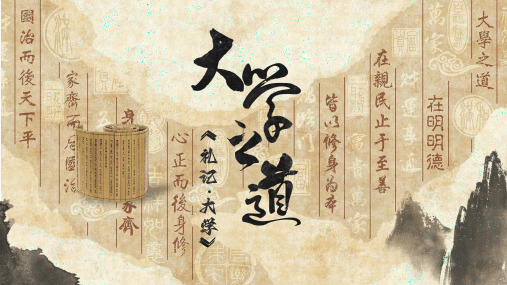 大學之道
在明明德
在親民止于至善
皆以修身為本
大学之道
《礼记·大学》
心正而後身修
身
家齊
家齊而后國治
國治而後天下平